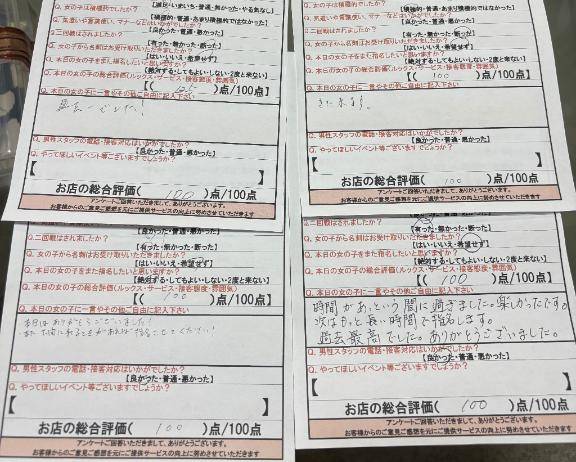 Q. 女の子は積極的でしたか?
Q. 気遣いや言葉使い、マナーなどはいかがでしたか?
【良かった・普通・悪かった】
Q.二回戦はされましたか?
【有った・無かった・断った】
Q. 女の子から名刺はお受け取りいただきましたか?
【はい・いいえ・希望せず】
Q. 本日の女の子をまた指名したいと思いますか?
【絶対する・してもよい・しない・2度と来ない】
Q. 本日の女の子の総合評価(ルックス・サービス・接客態度・雰囲気)
)点/100点
Q. 本日の女の子に一言やその他ご自由に記入下さい
Q. 男性スタッフの電話・接客対応はいかがでしたか?
【良かった・普通・悪かった】
Q. やってほしいイベント等ございますでしょうか?
【 】
お店の総合評価( 100 )点/100点
アンケートご回答いただきまして、ありがとうございます。
お客様からのご意見ご感想を元にご提供サービスの向上に努めさせていただきます
【積極的・普通・あまり積極的ではなかった】
Q. 気遣いや言葉使い、マナーなどはいかがでしたか?
【良かった・普通・悪かった】
Q.二回戦はされましたか?
【有った・無かった・断った】
Q. 女の子から名刺はお受け取りいただきましたか?
【はい・いいえ・希望せず】
Q. 本日の女の子をまた指名したいと思いますか?
【絶対する・してもよい・しない・2度と来ない】
Q. 本日の女の子の総合評価(ルックス・サービス・接客態度・雰囲気)
( 100 )点/100点
Q. 本日の女の子に一言やその他ご自由に記入下さい
また来ます。
Q. 男性スタッフの電話・接客対応はいかがでしたか?
【良かった・普通・悪かった】
Q. やってほしいイベント等ございますでしょうか?
【 】
お店の総合評価( 100 )点/100点
アンケートご回答いただきまして、ありがとうございます。
お客様からのご意見ご感想を元にご提供サービスの向上に努めさせていただきます
【良かった・普通・悪かった】
Q.二回戦はされましたか?
【有った・無かった・断った】
Q. 女の子から名刺はお受け取りいただきましたか?
【はい・いいえ・希望せず】
Q. 本日の女の子をまた指名したいと思いますか?
【絶対する・してもよい・しない・2度と来ない】
Q. 本日の女の子の総合評価(ルックス・サービス・接客態度・雰囲気)
( 100 )点/100点
Q. 本日の女の子に一言やその他ご自由に記入下さい
本日はありがとうございました!
Q. 男性スタッフの電話・接客対応はいかがでしたか?
【良かった・普通・悪かった】
Q. やってほしいイベント等ございますでしょうか?
【 】
お店の総合評価( 100 )点/100点
アンケートご回答いただきまして、ありがとうございます。
お客様からのご意見ご感想を元にご提供サービスの向上に努めさせていただきます
【良かった・普通・悪かった】
Q.二回戦はされましたか?
【有った・無かった・断った】
Q. 女の子から名刺はお受け取りいただきましたか?
【はい・いいえ・希望せず】
Q. 本日の女の子をまた指名したいと思いますか?
【絶対する・してもよい・しない・2度と来ない】
Q. 本日の女の子の総合評価(ルックス・サービス・接客態度・雰囲気)
( 100 )点/100点
Q. 本日の女の子に一言やその他ご自由に記入下さい
時間があっという間に過ぎました。楽しかったです。
次はもっと長い時間で指名します。
過去最高でした。ありがとうございました。
Q. 男性スタッフの電話・接客対応はいかがでしたか?
【良かった・普通・悪かった】
Q. やってほしいイベント等ございますでしょうか?
【 】
お店の総合評価( 100 )点/100点
アンケートご回答いただきまして、ありがとうございます。
お客様からのご意見ご感想を元にご提供サービスの向上に努めさせていただきます